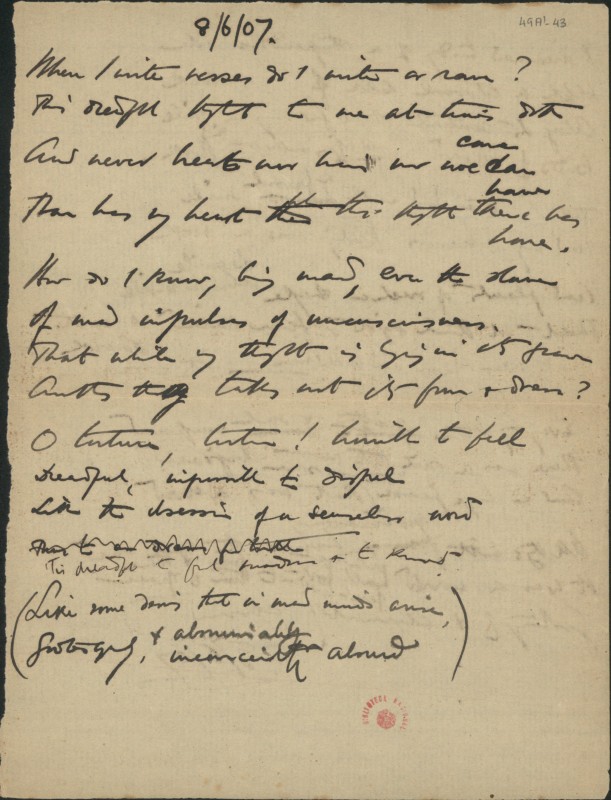 49A1-43
8/6/07.
When I write verses do I write or rave?
This dreadful thought to me at times doth
And never heart nor hand nor
come
Than has my heart this thought there has
home.
How do I know, being mad, even the slave
Of mad impulses of unconsciousness.
That while my thought is lying in its grave
Another takes not its form & dress?
O torture, torture! horrible to feel
Dreadful, impossible to dispel
Like the obsession of a senseless word
'Tis dreadful to feel madness & to know it
(Like some that in mad minds arise,
Grotesquely, & abominably
inconceivably absurd)
BIBLIOTECA NACIONAL